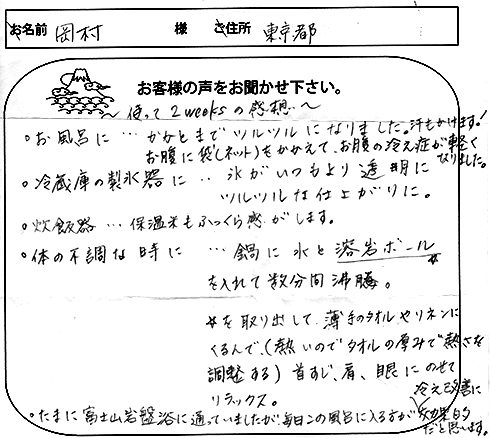 お名前 岡村 様 ご住所 東京都
お客様の声をお聞かせ下さい。
～使って2weeksの感想～
・お風呂に…かかとまでツルツルになりました。汗もかけます!
お腹に袋(ネット)をかかえて、お腹の冷え症が軽く
なりました。
・冷蔵庫の製氷器に…氷がいつもより透明に
ツルツルな仕上がりに。
・炊飯器…保温米もふっくら感がします。
・体の不調な時に…鍋に水と溶岩ボール☆
を入れて数分間沸騰。
☆を取り出して、薄手のタオルやリネンに
くるんで、(熱いのでタオルの厚みで熱さを
調整する)首すじ、肩、眼にのせて
リラックス。
・たまに富士山岩盤浴に通っていましたが、毎日この風呂に入る方が
冷え改善に
効果的
だと思います。